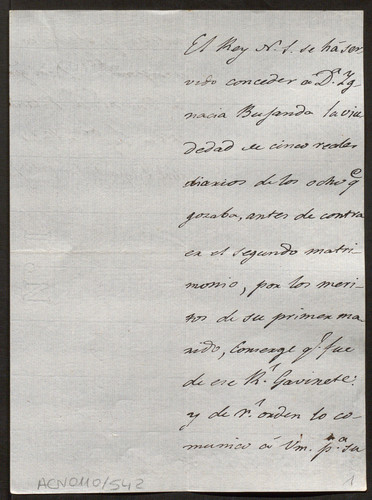 El Rey N. S. se há ser-
vido conceder á D.ª Yg-
nacia Busanda la viu-
dedad de cinco reales
diarios de los ocho q.e
gozaba, antes de contra-
er el segundo matri-
monio, por los meri-
tos de su primer ma-
rido, Conserge q.e fue
de ese R.l Gavinete.
y de r.l orden lo co-
munico á Vm. p.a su
ACN0110/542
1